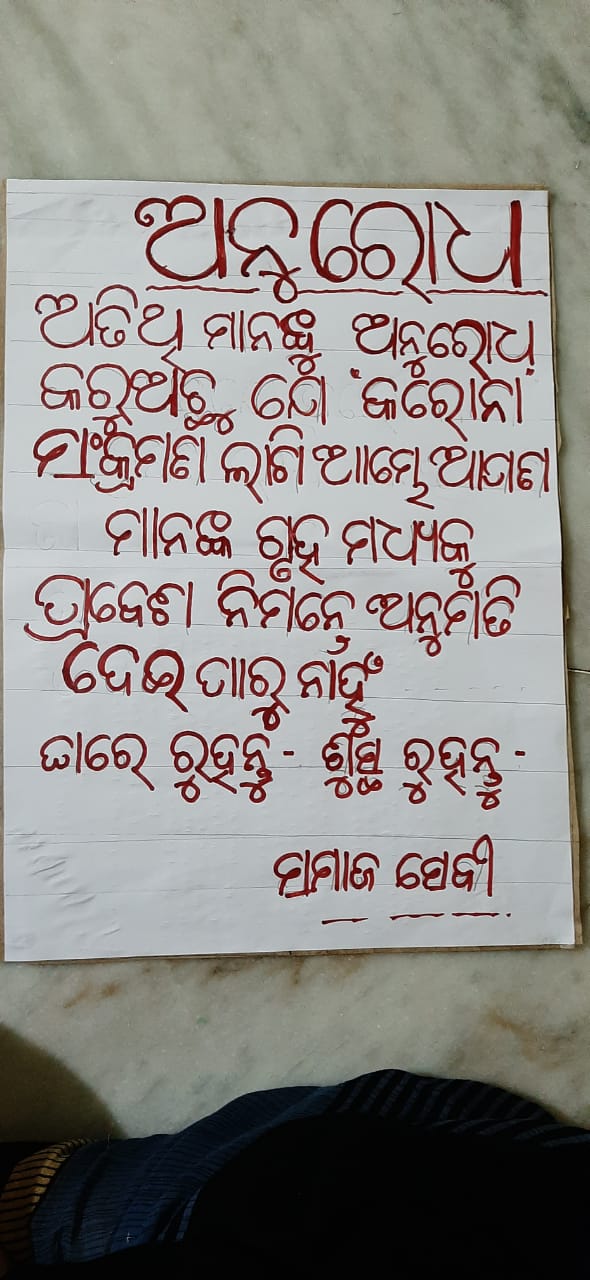 ଅନୁରୋଧ
ଅତିଥି ମାନଙ୍କୁ ଅନୁରୋଧ
କରୁଅଛୁ ଯେ 'କରୋନା'
ସଂକ୍ରମଣ ଲାଗି ଆମ୍ଭେ ଆପଣ
ମାନଙ୍କ ଗୃହ ମଧ୍ୟକୁ
ପ୍ରବେଶ ନିମନ୍ତେ ଅନୁମତି
ଦେଇ ପାରୁ ନାହୁଁ
ଘରେ ରୁହନ୍ତୁ - ଶୁସ୍ଥ ରୁହନ୍ତୁ -
ସମାଜ ସେବୀ